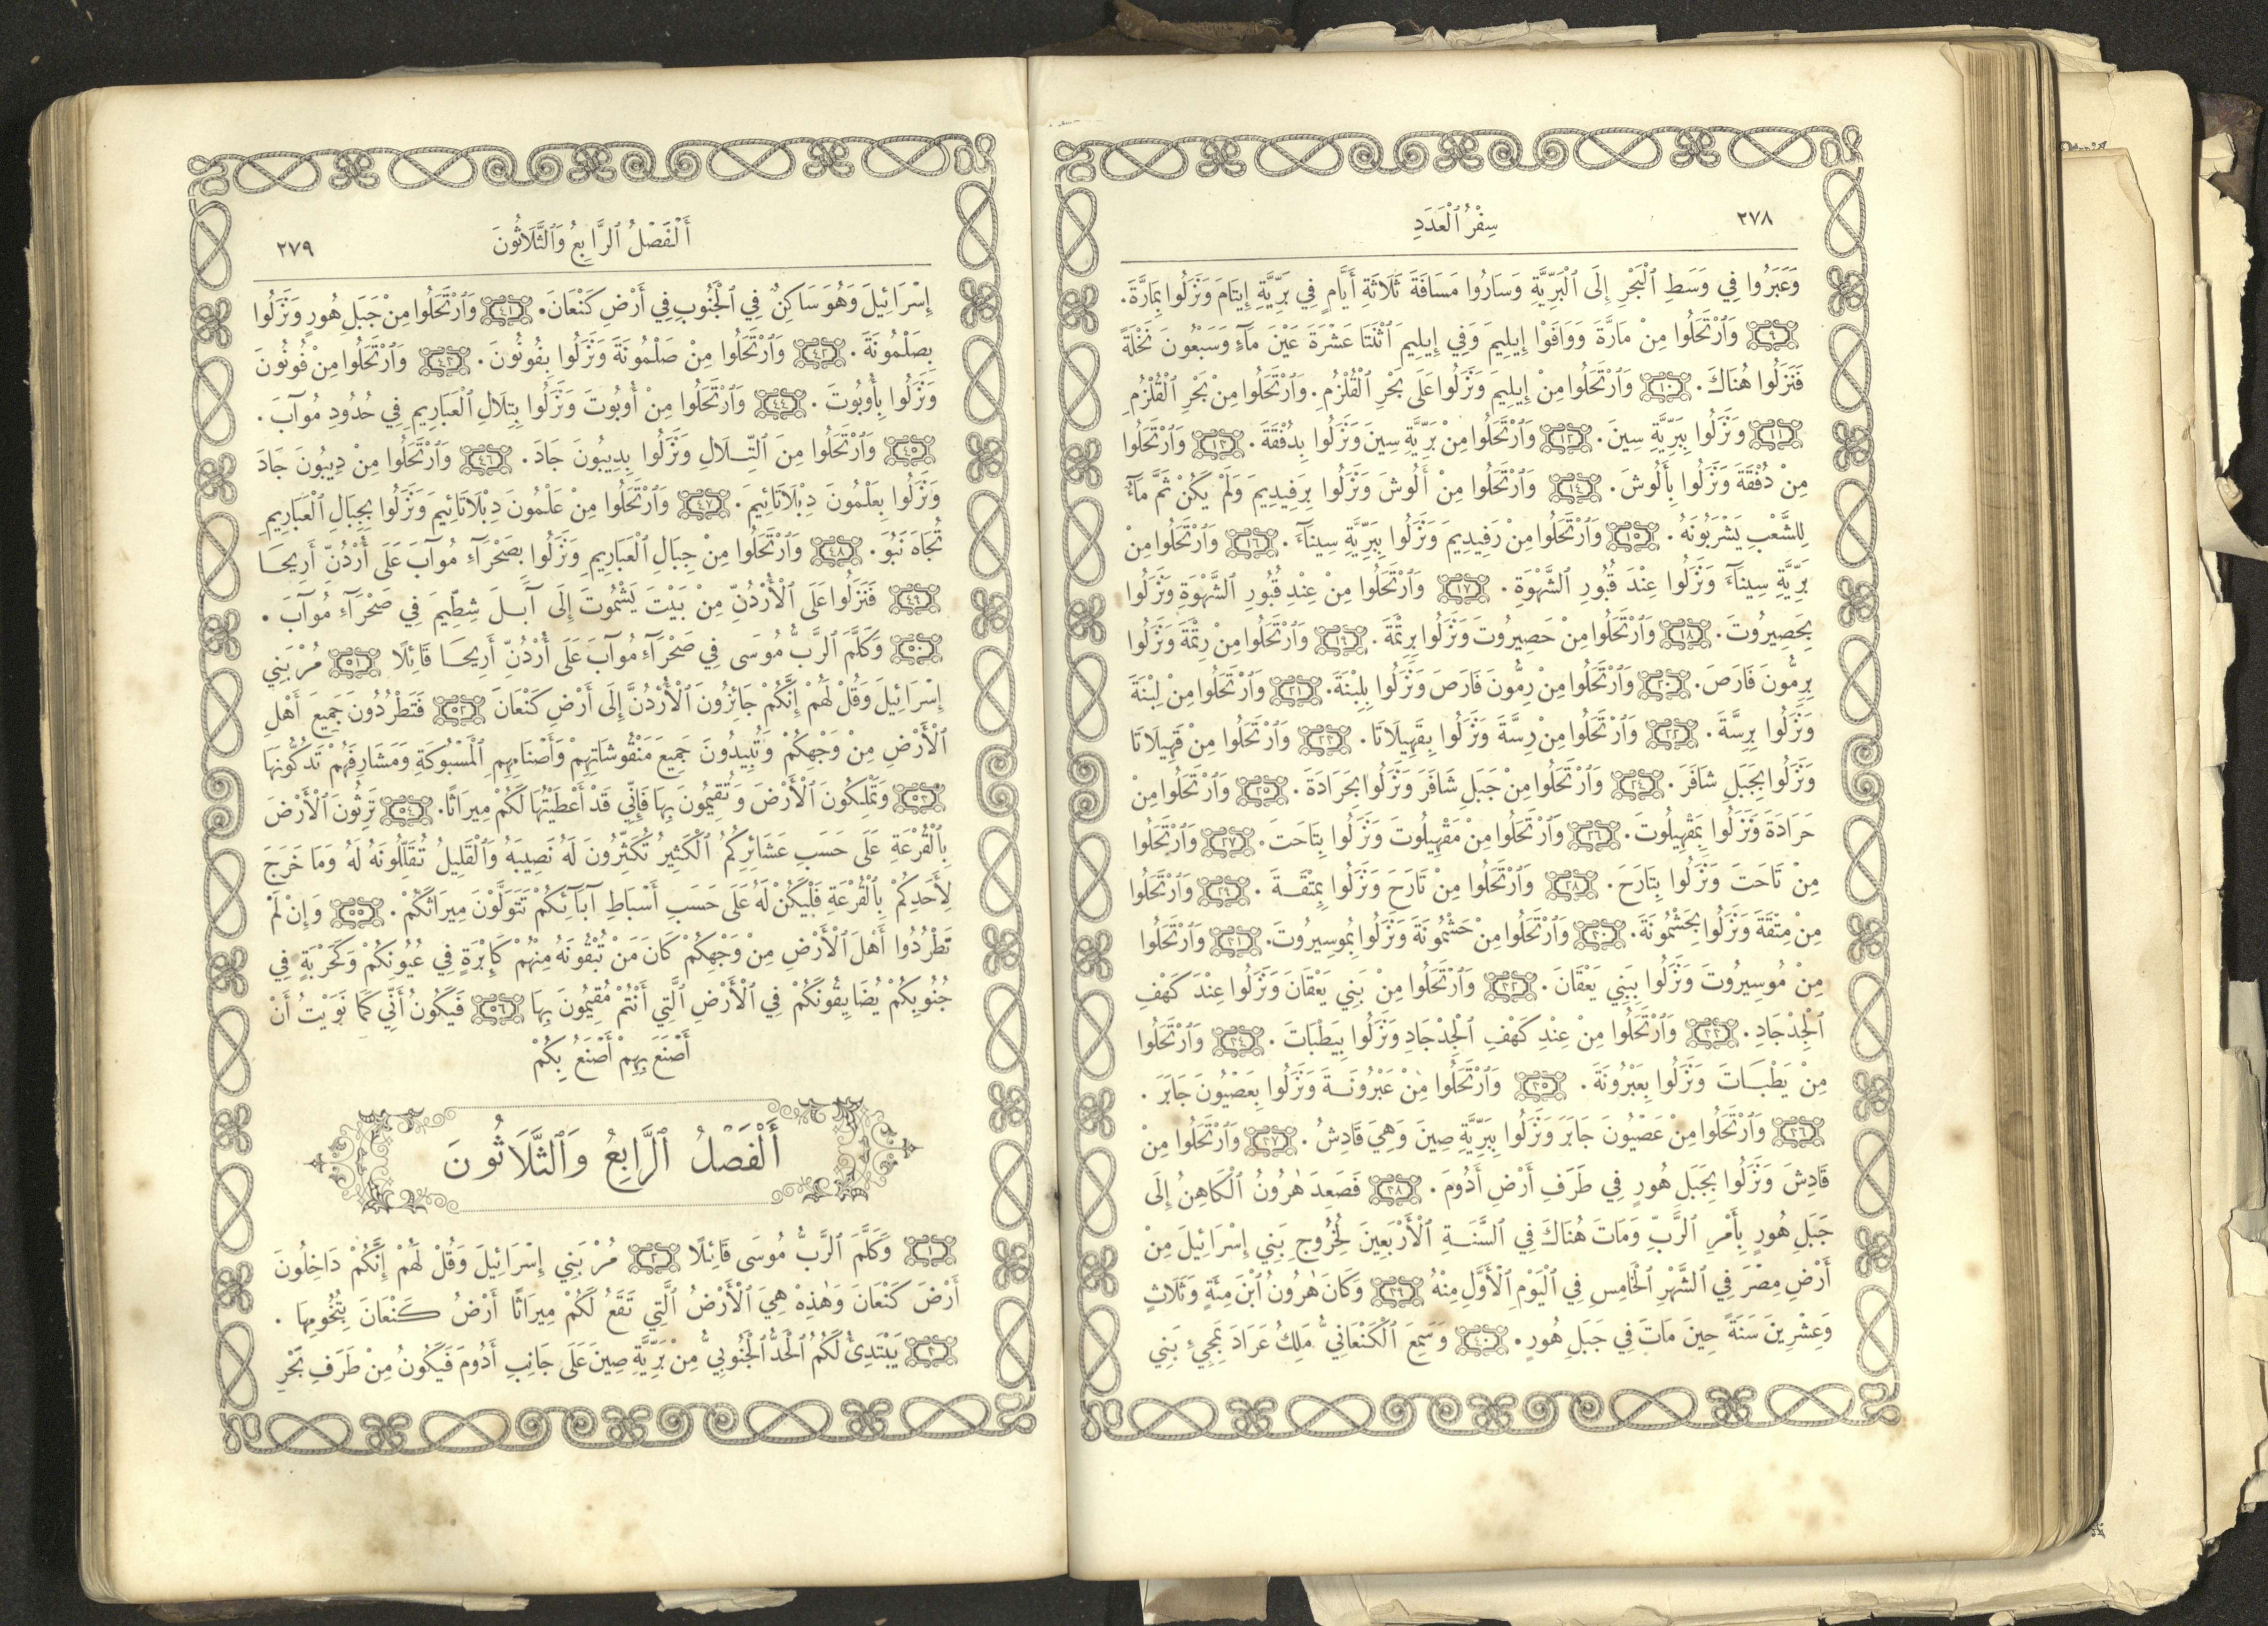 ٢٧٨ سِفْرُ ٱلْعَدَدِ
وَعَبَرُوا فِي وَسَطِ ٱلْبَحْرِ إِلَى ٱلْبَرِّيَّةِ وَسَارُوا مَسَافَةَ ثَلَاثَةِ أَيَّامٍ فِي بَرِّيَّةِ إِيتَامَ وَنَزَلُوا بِمَارَّةَ.
٩ وَٱرْتَحَلُوا مِنْ مَارَّةَ وَوَافَوْا إِيلِيمَ وَفِي إِيلِيمَ ٱثْنَتَا عَشْرَةَ عَيْنَ مَآءٍ وَسَبْعُونَ نَخْلَةً
فَنَزَلُوا هُنَاكَ. ١٠ وَٱرْتَحَلُوا مِنْ إِيلِيمَ وَنَزَلُوا عَلَى بَحْرِ ٱلْقُلْزُمِ. وَٱرْتَحَلُوا مِنْ بَحْرِ ٱلْقُلْزُمِ
١١ وَنَزَلُوا بِبَرِّيَّةِ سِينَ. ١٢ وَٱرْتَحَلُوا مِنْ بَرِّيَّةِ سِينَ وَنَزَلُوا بِدُفْقَةَ. ١٣ وَٱرْتَحَلُوا
مِنْ دُفْقَةَ وَنَزَلُوا بِأَلُوشَ. ١٤ وَٱرْتَحَلُوا مِنْ أَلُوشَ وَنَزَلُوا بِرَفِيدِيمَ وَلَمْ يَكُنْ ثَمَّ مَآءٌ
لِلشَّعْبِ يَشْرَبُونَهُ. ١٥ وَٱرْتَحَلُوا مِنْ رَفِيدِيمَ وَنَزَلُوا بِبَرِّيَّةِ سِينَآءَ. ١٦ وَٱرْتَحَلُوا مِنْ
بَرِّيَّةِ سِينَآءَ وَنَزَلُوا عِنْدَ قُبُورِ ٱلشَّهْوَةِ. ١٧ وَٱرْتَحَلُوا مِنْ عِنْدِ قُبُورِ ٱلشَّهْوَةِ وَنَزَلُوا
بِحَصِيرُوتَ. ١٨ وَٱرْتَحَلُوا مِنْ حَصِيرُوتَ وَنَزَلُوا بِرِثْمَةَ. ١٩ وَٱرْتَحَلُوا مِنْ رِثْمَةَ وَنَزَلُوا
بِرِمُّونَ فَارَصَ. ٢٠ وَٱرْتَحَلُوا مِنْ رِمُّونَ فَارَصَ وَنَزَلُوا بِلِبْنَةَ. ٢١ وَٱرْتَحَلُوا مِنْ لِبْنَةَ
وَنَزَلُوا بِرِسَّةَ. ٢٢ وَٱرْتَحَلُوا مِنْ رِسَّةَ وَنَزَلُوا بِقَهِيلَاتَا. ٢٣ وَٱرْتَحَلُوا مِنْ قَهِيلَاتَا
وَنَزَلُوا بِجَبَلِ شَافَرَ. ٢٤ وَٱرْتَحَلُوا مِنْ جَبَلِ شَافَرَ وَنَزَلُوا بِحَرَادَةَ. ٢٥ وَٱرْتَحَلُوا مِنْ
حَرَادَةَ وَنَزَلُوا بِمَقْهِيلُوتَ. ٢٦ وَٱرْتَحَلُوا مِنْ مَقْهِيلُوتَ وَنَزَلُوا بِتَاحَتَ. ٢٧ وَٱرْتَحَلُوا
مِنْ تَاحَتَ وَنَزَلُوا بِتَارَحَ. ٢٨ وَٱرْتَحَلُوا مِنْ تَارَحَ وَنَزَلُوا بِمِتْقَةَ. ٢٩ وَٱرْتَحَلُوا
مِنْ مِتْقَةَ وَنَزَلُوا بِحَشْمُونَةَ. ٣٠ وَٱرْتَحَلُوا مِنْ حَشْمُونَةَ وَنَزَلُوا بِمُوسِيرُوتَ. ٣١ وَٱرْتَحَلُوا
مِنْ مُوسِيرُوتَ وَنَزَلُوا بِبَنِي يَعْقَانَ. ٣٢ وَٱرْتَحَلُوا مِنْ بَنِي يَعْقَانَ وَنَزَلُوا عِنْدَ كَهْفِ
ٱلْجِدْجَادِ. ٣٣ وَٱرْتَحَلُوا مِنْ عِنْدِ كَهْفِ ٱلْجِدْجَادِ وَنَزَلُوا بِيَطْبَاتَ. ٣٤ وَٱرْتَحَلُوا
مِنْ يَطْبَاتَ وَنَزَلُوا بِعَبْرُونَةَ. ٣٥ وَٱرْتَحَلُوا مِنْ عَبْرُونَةَ وَنَزَلُوا بِعَصْيُونَ جَابَرَ.
٣٦ وَٱرْتَحَلُوا مِنْ عَصْيُونَ جَابَرَ وَنَزَلُوا بِبَرِّيَّةِ صِينَ وَهِيَ قَادِشُ. ٣٧ وَٱرْتَحَلُوا مِنْ
قَادِشَ وَنَزَلُوا بِجَبَلِ هُورٍ فِي طَرَفِ أَرْضِ أَدُومَ. ٣٨ فَصَعِدَ هٰرُونُ ٱلْكَاهِنُ إِلَى
جَبَلِ هُورٍ بِأَمْرِ ٱلرَّبِّ وَمَاتَ هُنَاكَ فِي ٱلسَّنَةِ ٱلْأَرْبَعِينَ لِخُرُوجِ بَنِي إِسْرَائِيلَ مِنْ
أَرْضِ مِصْرَ فِي ٱلشَّهْرِ ٱلْخَامِسِ فِي ٱلْيَوْمِ ٱلْأَوَّلِ مِنْهُ ٣٩ وَكَانَ هٰرُونُ ٱبْنَ مِئَةٍ وَثَلَاثٍ
وَعِشْرِينَ سَنَةً حِينَ مَاتَ فِي جَبَلِ هُورٍ. ٤٠ وَسَمِعَ ٱلْكَنْعَانِيُّ مَلِكُ عَرَادَ بِمَجِيْءِ بَنِي
أَلْفَصْلُ ٱلرَّابِعُ وَٱلثَّلَاثُونَ ٢٧٩
إِسْرَائِيلَ وَهُوَ سَاكِنٌ فِي ٱلْجَنُوبِ فِي أَرْضِ كَنْعَانَ. ٤١ وَٱرْتَحَلُوا مِنْ جَبَلِ هُورٍ وَنَزَلُوا
بِصَلْمُونَةَ. ٤٢ وَٱرْتَحَلُوا مِنْ صَلْمُونَةَ وَنَزَلُوا بِفُونُونَ. ٤٣ وَٱرْتَحَلُوا مِنْ فُونُونَ
وَنَزَلُوا بِأُوبُوتَ. ٤٤ وَٱرْتَحَلُوا مِنْ أُوبُوتَ وَنَزَلُوا بِتِلَالِ ٱلْعَبَارِيمِ فِي حُدُودِ مُوآبَ.
٤٥ وَٱرْتَحَلُوا مِنَ ٱلتِّلَالِ وَنَزَلُوا بِدِيبُونَ جَادَ. ٤٦ وَٱرْتَحَلُوا مِنْ دِيبُونَ جَادَ
وَنَزَلُوا بِعَلْمُونَ دِبْلَاتَائِيمَ. ٤٧ وَٱرْتَحَلُوا مِنْ عَلْمُونَ دِبْلَاتَائِيمَ وَنَزَلُوا بِجِبَالِ ٱلْعَبَارِيمِ
تُجَاهَ نَبُوَ. ٤٨ وَٱرْتَحَلُوا مِنْ جِبَالِ ٱلْعَبَارِيمِ وَنَزَلُوا بِصَحْرَآءِ مُوآبَ عَلَى أُرْدُنِّ أَرِيحَا
٤٩ فَنَزَلُوا عَلَى ٱلْأُرْدُنِّ مِنْ بَيْتَ يَشْمُوتَ إِلَى آبَلَ شِطِّيمَ فِي صَحْرَآءِ مُوآبَ.
٥٠ وَكَلَّمَ ٱلرَّبُّ مُوسَى فِي صَحْرَآءِ مُوآبَ عَلَى أُرْدُنِّ أَرِيحَا قَائِلًا ٥١ مُرْ بَنِي
إِسْرَائِيلَ وَقُلْ لَهُمْ إِنَّكُمْ جَائِزُونَ ٱلْأُرْدُنَّ إِلَى أَرْضِ كَنْعَانَ ٥٢ فَتَطْرُدُونَ جَمِيعَ أَهْلِ
ٱلْأَرْضِ مِنْ وَجْهِكُمْ وَتُبِيدُونَ جَمِيعَ مَنْقُوشَاتِهِمْ وَأَصْنَامِهِمِ ٱلْمَسْبُوكَةِ وَمَشَارِفَهُمْ تَدُكُّونَهَا
٥٣ وَتَمْلِكُونَ ٱلْأَرْضَ وَتُقِيمُونَ بِهَا فَإِنِّي قَدْ أَعْطَيْتُهَا لَكُمْ مِيرَاثًا. ٥٤ تَرِثُونَ ٱلْأَرْضَ
بِٱلْقُرْعَةِ عَلَى حَسَبِ عَشَائِرِكُمُ ٱلْكَثِيرُ تُكَثِّرُونَ لَهُ نَصِيبَهُ وَٱلْقَلِيلُ تُقَلِّلُونَهُ لَهُ وَمَا خَرَجَ
لِأَحَدِكُمْ بِٱلْقُرْعَةِ فَلْيَكُنْ لَهُ عَلَى حَسَبِ أَسْبَاطِ آبَآئِكُمْ تَتَوَلَّوْنَ مِيرَاثَكُمْ. ٥٥ وَإِنْ لَمْ
تَطْرُدُوا أَهْلَ ٱلْأَرْضِ مِنْ وَجْهِكُمْ كَانَ مَنْ تُبْقُونَهُ مِنْهُمْ كَإِبْرَةٍ فِي عُيُونِكُمْ وَكَحَرْبَةٍ فِي
جُنُوبِكُمْ يُضَايِقُونَكُمْ فِي ٱلْأَرْضِ ٱلَّتِي أَنْتُمْ مُقِيمُونَ بِهَا ٥٦ فَيَكُونُ أَنِّي كَمَا نَوَيْتُ أَنْ
أَصْنَعَ بِهِمْ أَصْنَعُ بِكُمْ
أَلْفَصْلُ ٱلرَّابِعُ وَٱلثَّلَاثُونَ
١ وَكَلَّمَ ٱلرَّبُّ مُوسَى قَائِلًا ٢ مُرْ بَنِي إِسْرَائِيلَ وَقُلْ لَهُمْ إِنَّكُمْ دَاخِلُونَ
أَرْضَ كَنْعَانَ وَهٰذِهْ هِيَ ٱلْأَرْضُ ٱلَّتِي تَقَعُ لَكُمْ مِيرَاثًا أَرْضُ كَنْعَانَ بِتُخُومِهَا.
٣ يَبْتَدِئُ لَكُمُ ٱلْحَدُّ ٱلْجَنُوبِيُّ مِنْ بَرِّيَّةِ صِينَ عَلَى جَانِبِ أَدُومَ فَيَكُونُ مِنْ طَرَفِ بَحْرِ